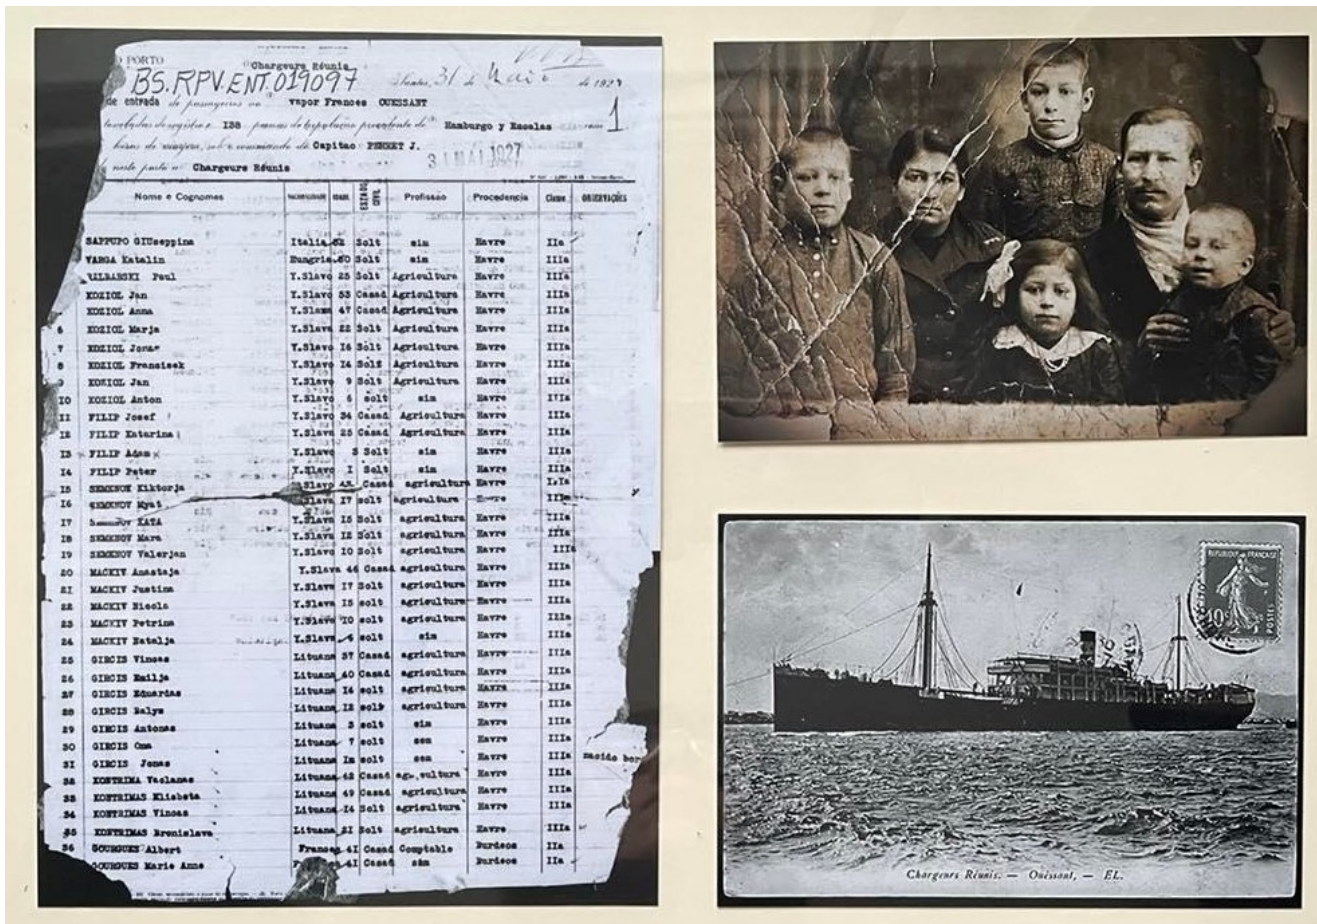 PORTO
Chargeurs Réunis
BS.RPV.ENT.019097
Santos, 31 de Maio de 1927
de entrada de passageiros no vapor Frances OUESSANT
toneladas de registro e 138 pessoas de tripulação procedente de Hamburgo y Escalas com 1
horas de viagem, sob o commando do Capitao PERRET J.
31 MAI 1927
neste porto a Chargeurs Réunis
Nome e Cognomes NACIONALIDADE IDADE ESTADO CIVIL Profissão Procedencia Classe OBSERVAÇÕES
SAPPUPO GIUseppina Italia 52 Solt sim Havre IIa
VARGA Katalin Hungria Solt sim Havre IIIa
Paul Y.Slavo 25 Solt Agricultura Havre IIIa
KOZIOL Jan Y.Slavo 53 Casad Agricultura Havre IIIa
KOZIOL Anna Y.Slava 47 Casad Agricultura Havre IIIa
6 KOZIOL Marja Y.Slava 22 Solt Agricultura Havre IIIa
7 KOZIOL Jonas Y.Slavo I6 Solt Agricultura Havre IIIa
8 KOZIOL Fransisek Y.Slavo I4 Solt Agricultura Havre IIIa
9 KOZIOL Jan Y.Slavo 9 Solt Agricultura Havre IIIa
I0 KOZIOL Anton Y.Slavo 6 solt sim Havre IIIa
II FILIP Josef Y.Slavo 34 Casad Agricultura Havre IIIa
I2 FILIP Katarina Y.Slava 25 Casad Agricultura Havre IIIa
I3 FILIP Adam Y.Slavo 3 Solt sim Havre IIIa
I4 FILIP Peter Y.Slavo I Solt sim Havre IIIa
I5 SEMENOW Kiktorja Y.Slavo Casad agricultura Havre IIIa
I6 SEMENOV Myat Y.Slava I7 solt agricultura Havre IIIa
I7 KATA Y.Slava I5 solt agricultura Havre IIIa
I8 SEMENOV Mara Y.Slava I2 Solt agricultura Havre IIIa
I9 SEMENOV Valerjan Y.Slavo I0 Solt agricultura Havre IIIa
20 MACKIV Anastaja Y.Slava 46 Casad agricultura Havre IIIa
2I MACKIV Justina Y.Slava I7 Solt agricultura Havre IIIa
22 MACKIV Nicola Y.Slava I5 solt agricultura Havre IIIa
23 MACKIV Petrina Y.Slava I0 solt agricultura Havre IIIa
24 MACKIV Natalja Y.Slava 4 solt sim Havre IIIa
25 GIRCIS Vincas Lituana 37 Casad agricultura Havre IIIa
26 GIRCIS Emilja Lituana 40 Casad agricultura Havre IIIa
27 GIRCIS Eduardas Lituana I4 solt agricultura Havre IIIa
28 GIRCIS Balys Lituana I2 solt agricultura Havre IIIa
29 GIRCIS Antonas Lituana 3 solt sim Havre IIIa
30 GIRCIS Ona Lituana 7 solt sem Havre IIIa
3I GIRCIS Jonas Lituana Im solt sem Havre IIIa nacido bor
32 KONTRIMA Vaclanas Lituana 42 Casad agricultura Havre IIIa
33 KONTRIMAS Elisbeta Lituana 49 Casad agricultura Havre IIIa
34 KONTRIMAS Vincas Lituana I4 Solt agricultura Havre IIIa
35 KONTRIMAS Bronislava Lituana 2I Solt agricultura Havre IIIa
36 GOURGUES Albert Frances 4I Casad Comptable Burdeos IIa
GOURGUES Marie Anne 4I Casad sim Burdeos IIa
REPUBLIQUE FRANÇAISE
10c
POSTES
Chargeurs Réunis. — Ouëssant, — EL.